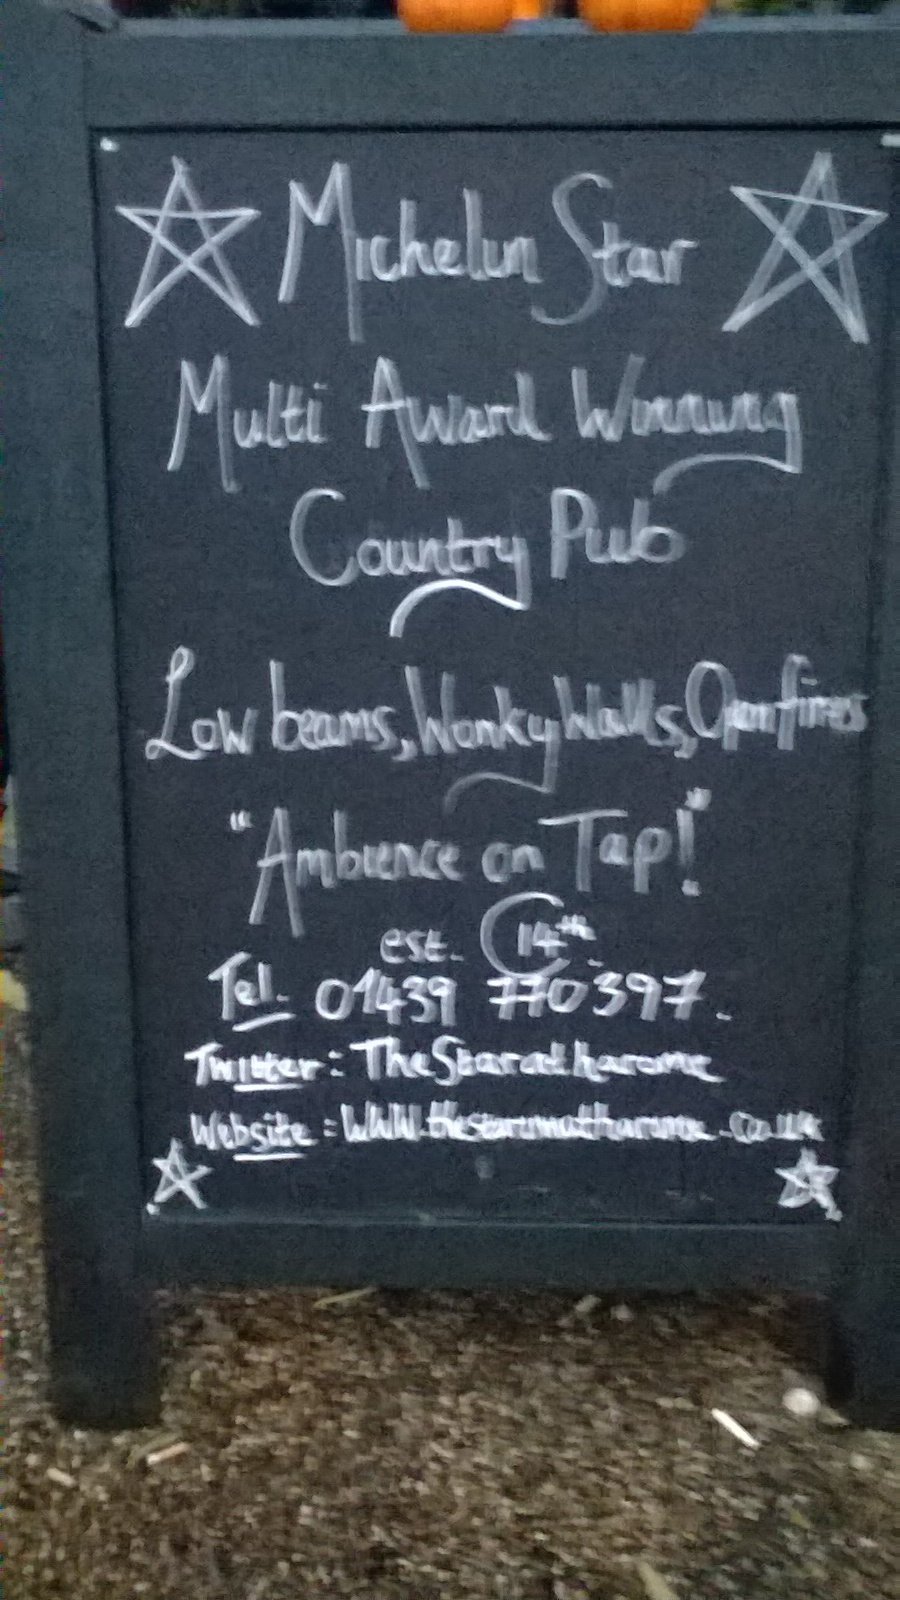 Michelin Star
Multi Award Winning
Country Pub
Low beams, Wonky Walls, Open fires
"Ambience on Tap!"
est. C14th.
Tel. 01439 770397.
Twitter: TheStaratharome
Website: www.thestarinnatharome.co.uk